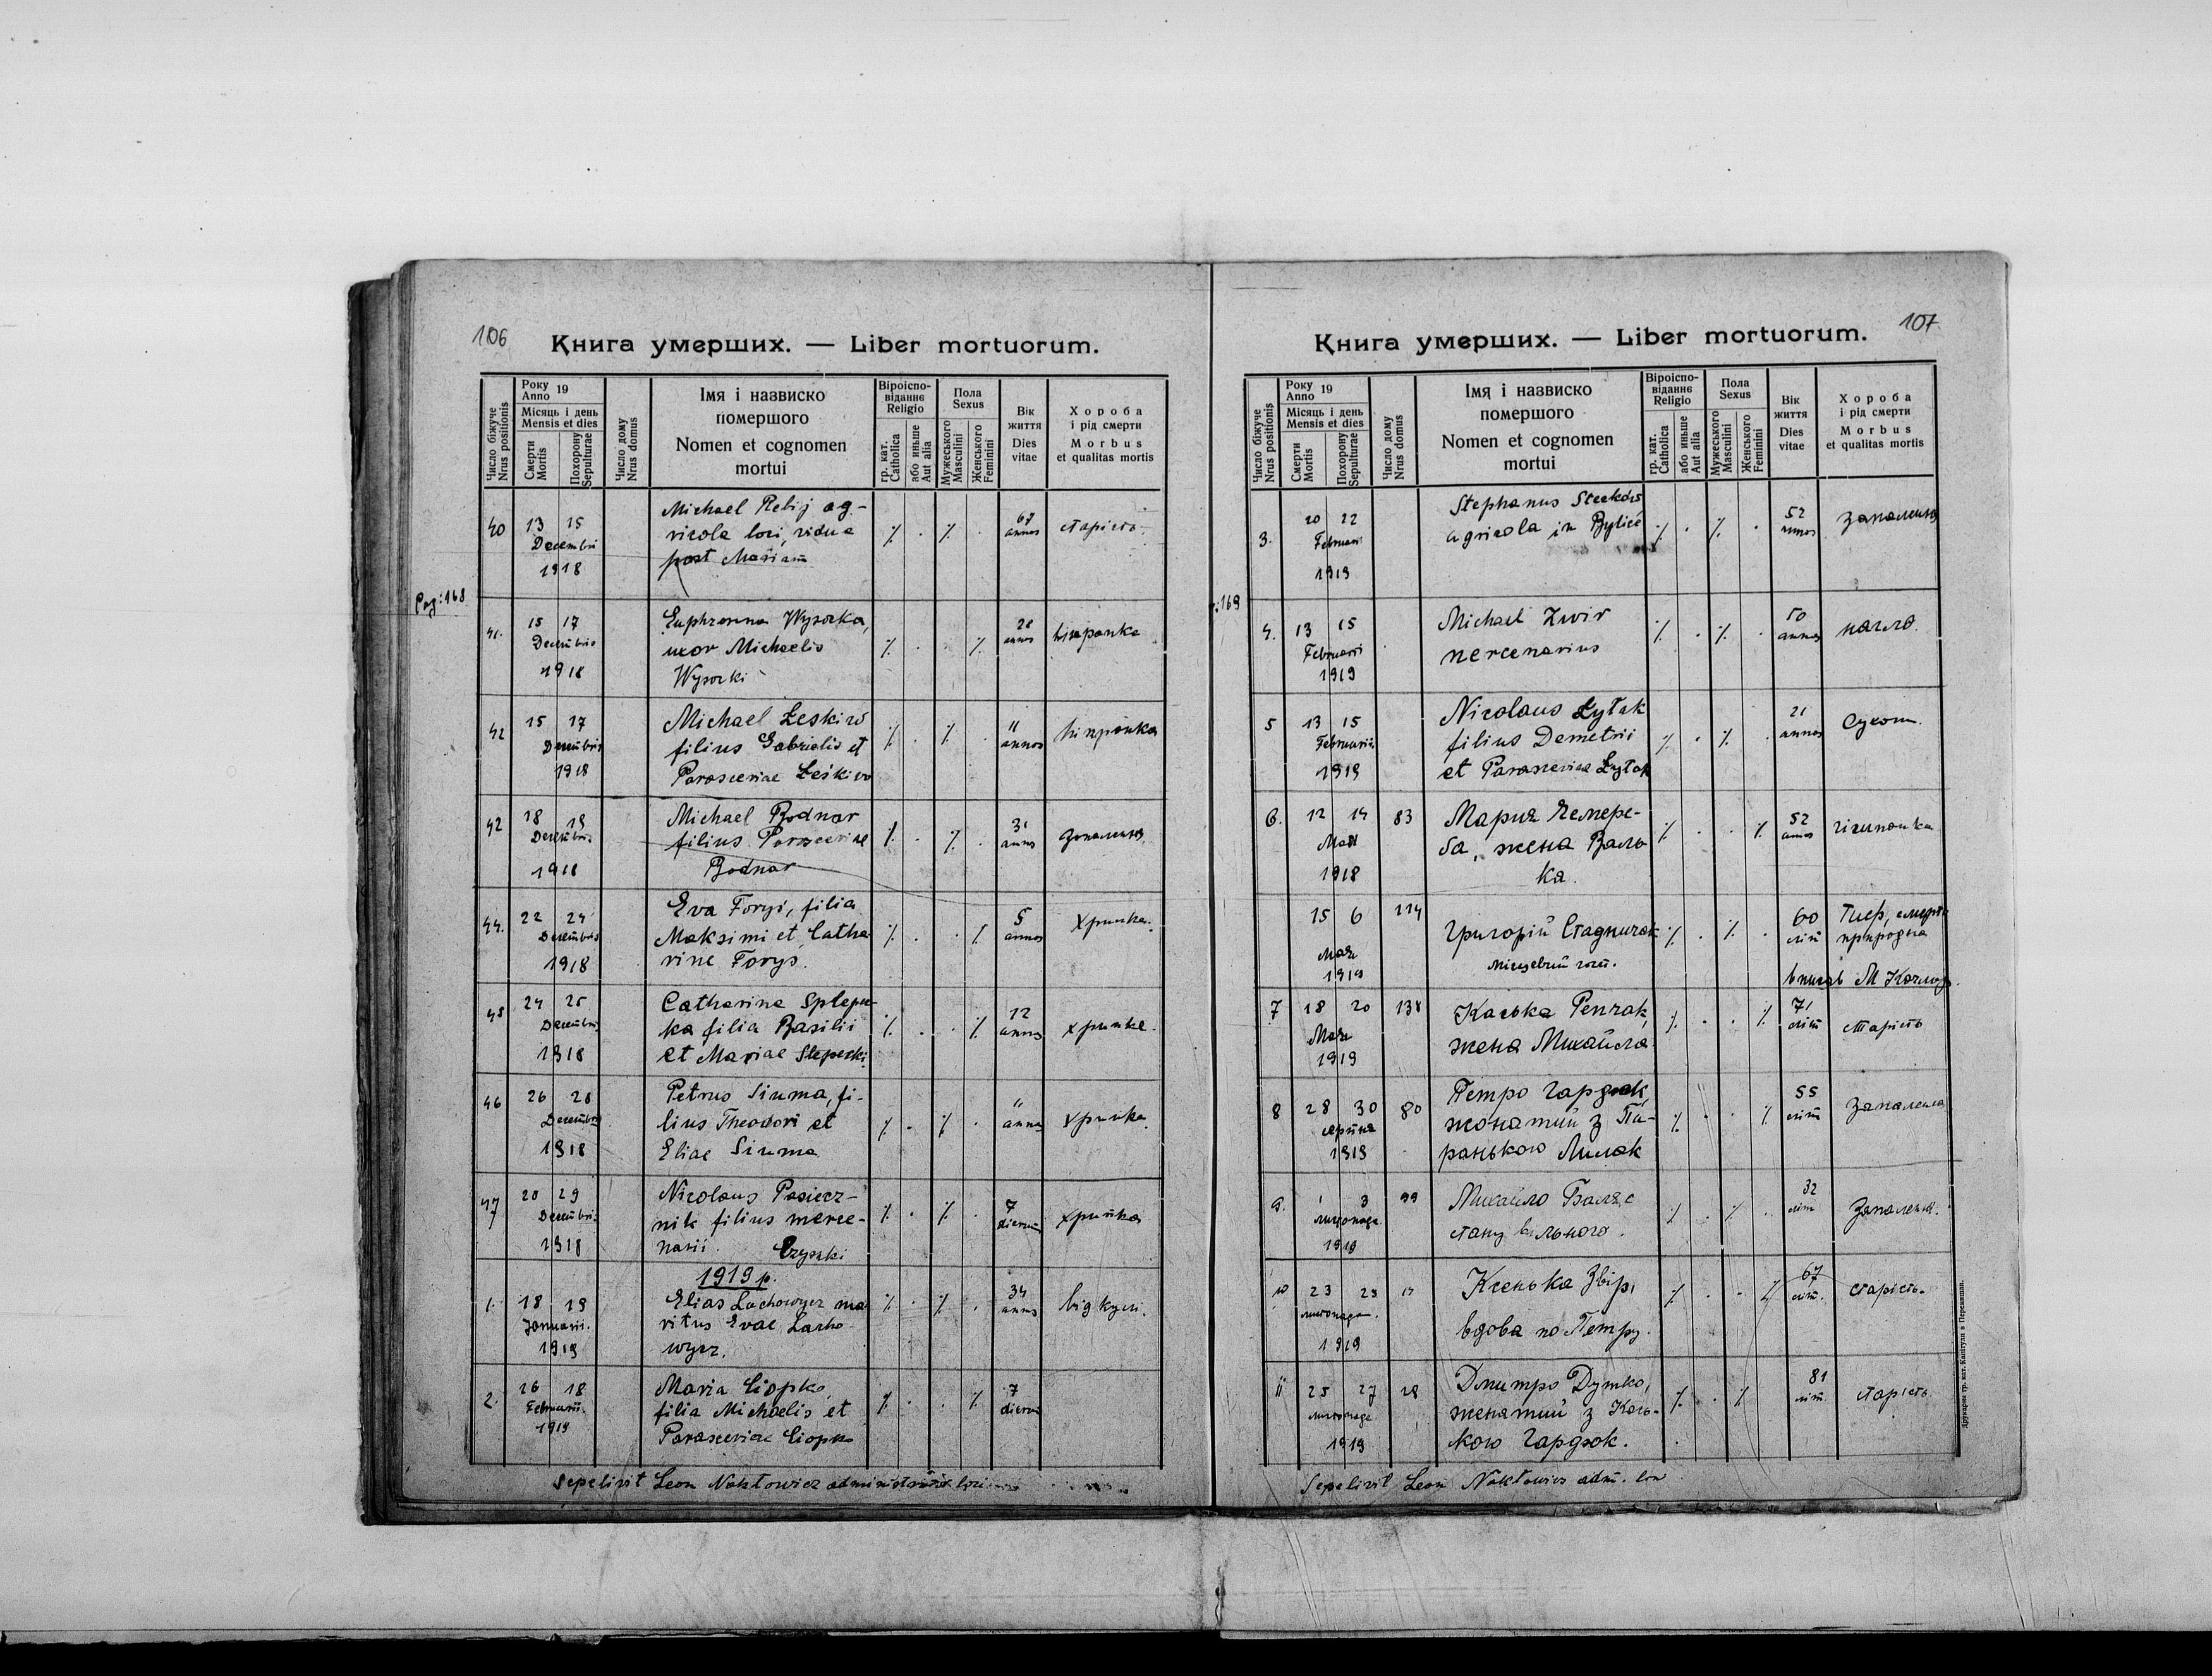 106
Книга умерших. — Liber mortuorum.
Число біжуче
Nrus positionis
Року 19
Anno
Місяць і день
Mensis et dies
Смерти
Mortis
Похорону
Sepulturae
Число дому
Nrus domus
Імя і назвиско
помершого
Nomen et cognomen
mortui
Віроіспо-
віданнє
Religio
гр. кат.
Catholica
або иньше
Aut alia
Пола
Sexus
Мужеського
Masculini
Женського
Feminini
Вік
життя
Dies
vitae
Хороба
і рід смерти
Morbus
et qualitas mortis
40 13 15 Decembri 1918
Michael Rebij ag-
ricola loci, vidua
post Mariam
67 annos старість
Pag: 168
41. 15 17 Decembris 1918
Euphrosina Wysocka,
uxor Michaelis
Wysocki
28 annos
42 15 17 Decembris 1918
Michael Łeskiw
filius Gabrielis et
Parasceviae Łeskiw
11 annos
42 18 19 Decembris 1918
Michael Bodnar
filius Parasceviae
Bodnar
31 annos запалення
44. 22 24 Decembris 1918
Eva Forys, filia
Maksimi et Catha
rine Forys.
5 annos хрипка.
45 24 25 Decembris 1918
Catharina
ka filia Basilii
et Mariae
12 annos хрипка.
46 26 28 Decembris 1918
Petrus Siuma, fi-
lius Theodori et
Eliae Siuma
11 annos хрипка.
47 20 29 Decembris 1918
Nicolaus Pasiecz-
nik filius merce-
narii.
7 dierum хрипка
1919 р.
1. 18 19 Januarii. 1919
Elias Lachowycz ma
ritus Evae Lacho
wycz.
34 annos від кулі.
2. 16 18 Februarii. 1919
Maria Ciopko,
filia Michaelis et
Parasceviae Ciopko
7 dierum
Sepelivit Leon Noktowicz administrator loci
107
Книга умерших. — Liber mortuorum.
Число біжуче
Nrus positionis
Року 19
Anno
Місяць і день
Mensis et dies
Смерти
Mortis
Похорону
Sepulturae
Число дому
Nrus domus
Імя і назвиско
помершого
Nomen et cognomen
mortui
Віроіспо-
віданнє
Religio
гр. кат.
Catholica
або иньше
Aut alia
Пола
Sexus
Мужеського
Masculini
Женського
Feminini
Вік
життя
Dies
vitae
Хороба
і рід смерти
Morbus
et qualitas mortis
3. 20 22 Februarii 1919
Stephanus Stecków
agricola in Bylice
52 annos запалення
: 169
4. 13 15 Februarii 1919
Michael Zwir
mercenarius
50 annos нагла.
5 13 15 Februarii 1919
Nicolaus Łytak
filius Demetrii
et Parasceviae Łytak
21 annos Сухоти.
6. 12 14 Мая 1918 83
Мария Чемере-
ба, жена Валь
ка.
52 annos
15 6 Мая 1919 114
Григорій Стадничак
місцевий
60 літ Тиф, смерть
природна
вписав М
7 18 20 Мая 1919 138
Каська Репчак,
жена Михайла.
71 літ старість
8 28 30 серпня 1919 80
Петро Гардюк,
жонатий з Па-
ранькою Лилак
55 літ запалення
9. 1 3 листопада 1919 99
Михайло
стану вільного.
32 літ запалення.
10 23 25 листопада. 1919
Ксенька Звір,
вдова по Петру.
67 літ. старість.
11 25 27 листопада 1919 28
Дмитро Дутко,
женатий з Кась-
кою Гардюк.
81 літ. старість
Sepelivit Leon Noktowicz adm. loci
Друкарня гр. кат. Капітули в Перемишли.